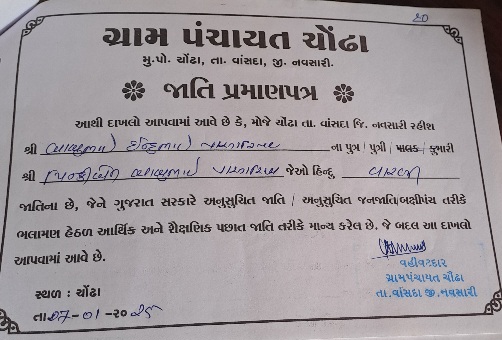 20
ગ્રામ પંચાયત ચોંઢા
મુ.પો. ચોંઢા, તા. વાંસદા, જી. નવસારી.
જાતિ પ્રમાણપત્ર
આથી દાખલો આપવામાં આવે છે કે, મોજે ચોંઢા તા. વાંસદા જિ. નવસારી રહીશ
શ્રી ના પુત્ર / પુત્રી / પાલક / કુમારી
શ્રી જેઓ હિન્દુ વારલી
જાતિના છે, જેને ગુજરાત સરકારે અનુસુચિત જાતિ / અનુસુચિત જનજાતિ/બક્ષીપંચ તરીકે
ભલામણ હેઠળ આર્થિક અને શૈક્ષણિક પછાત જાતિ તરીકે માન્ય કરેલ છે. જે બદલ આ દાખલો
આપવામાં આવે છે.
વહીવટદાર
ગ્રામપંચાયત ચોંઢા
તા.વાંસદા જી.નવસારી
સ્થળ : ચોંઢા
તા.07-01-2025